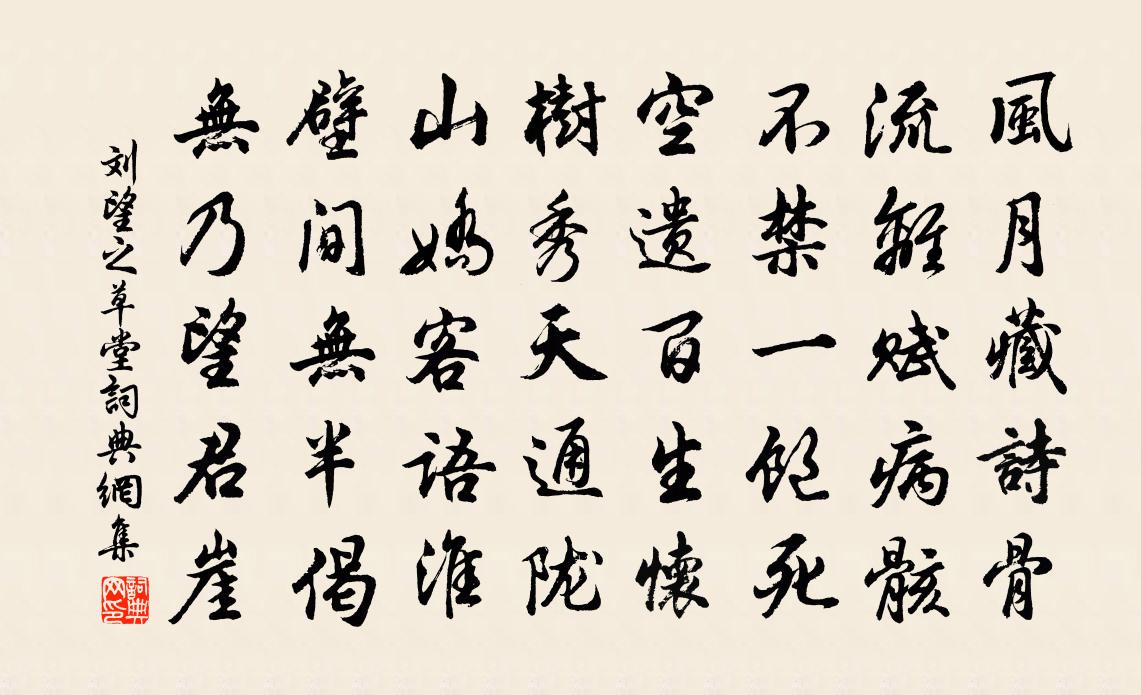 風月藏詩骨
流離賦病骸
不禁一飽死
空遗百生懷
樹秀天通陇
山嬌客語淮
壁間無半偈
無乃望君崖
刘望之草堂詞典網集
詞典网印